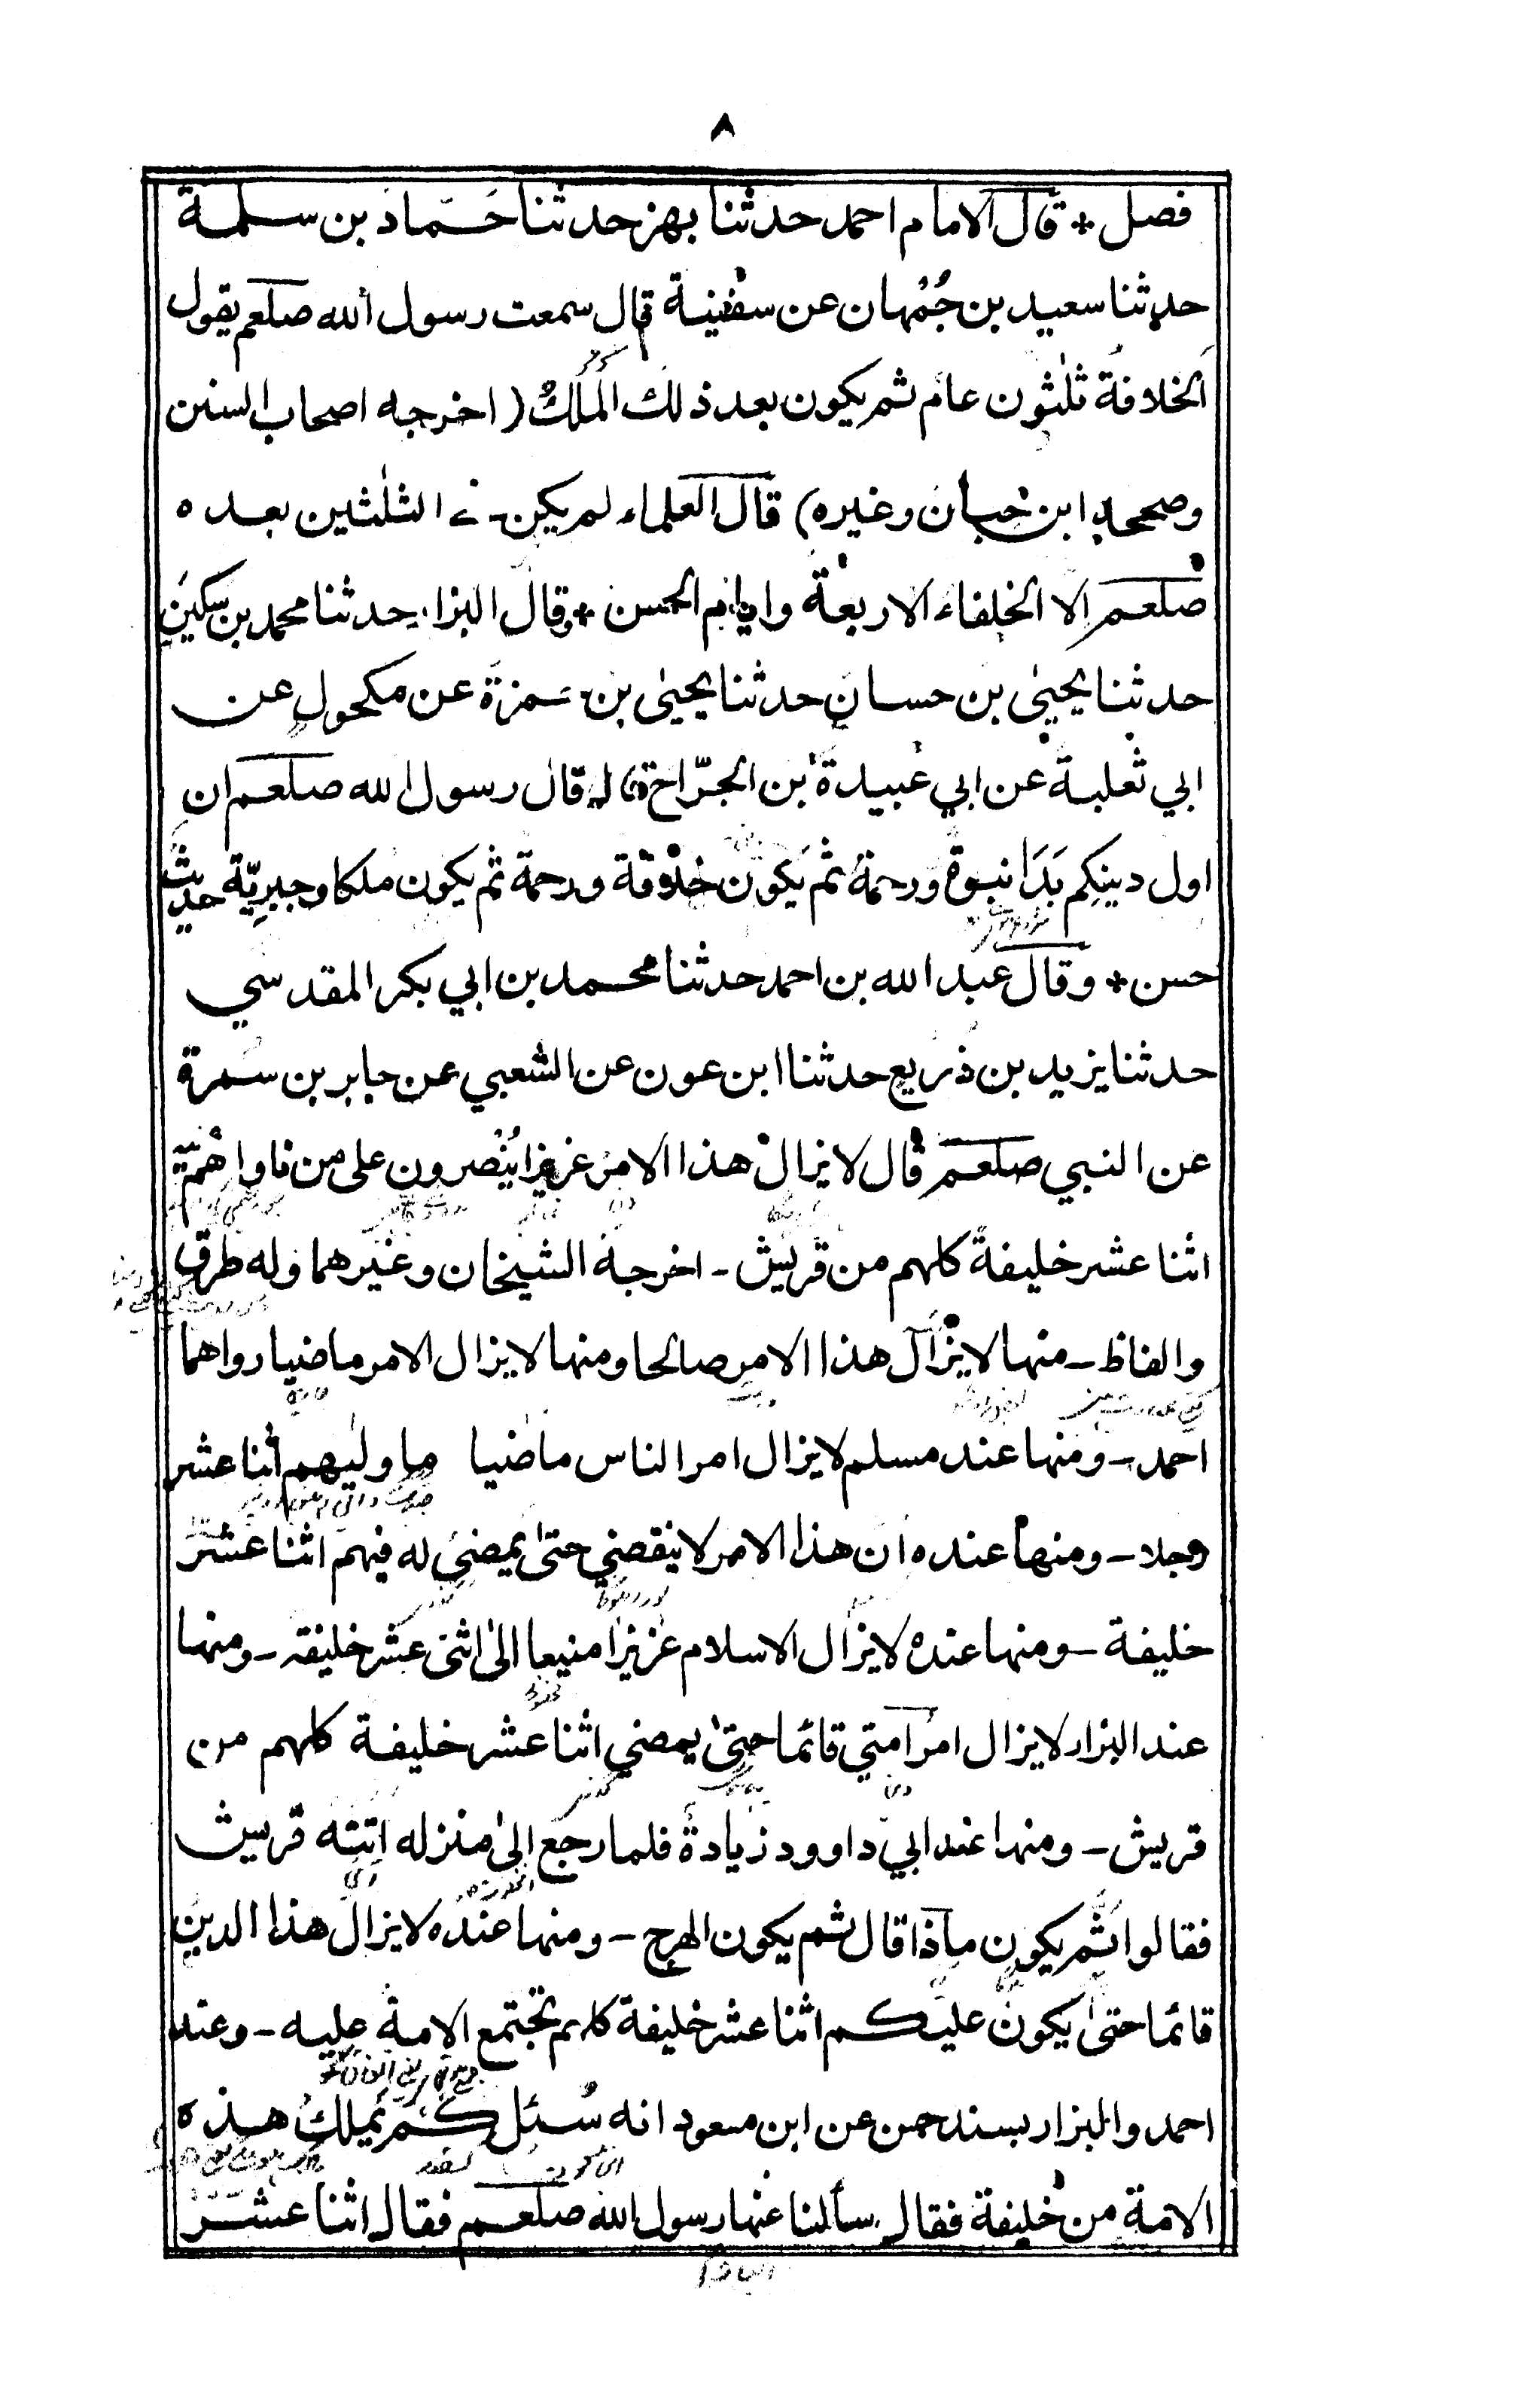 ٨
فصل * قال الامام احمد حدثنا بهز حدثنا حَمّاد بن سلمة
حدثنا سعيد بن جُمْهان عن سفينة قال سمعت رسول الله صلعم يقول
الخلافة ثلٰثون عام ثم يكون بعد ذلك الملك ( اخرجه اصحاب السنن
وصححه ابن حبان وغيره ) قال العلماء لم يكن في الثلٰثين بعده
صلعم الا الخلفاء الاربعة وايام الحسن * وقال البزار حدثنا محمد بن سكين
حدثنا يحيىٰ بن حسان حدثنا يحيىٰ بن حمزة عن مكحول عن
ابي ثعلبة عن ابي عبيدة بن الجرّاح قال قال رسول الله صلعم ان
اول دينكم بَدَا نبوة ورحمة ثم يكون خلافة ورحمة ثم يكون ملكا وجبريّة حديث
حسن * وقال عبد الله بن احمد حدثنا محمد بن ابي بكر المقدسي
حدثنا يزيد بن ذريع حدثنا ابن عون عن الشعبي عن جابر بن سمرة
عن النبي صلعم قال لا يزال هذا الامر عزيزا يُنْصرون على من ناواهم
اثنا عشر خليفة كلهم من قريش ـ اخرجه الشيخان وغيرهما وله طرق
والفاظ ـ منها لا يزال هذا الامر صالحا ومنها لا يزال الامر ماضيا رواهما
احمد ـ ومنها عند مسلم لا يزال امر الناس ماضيا ما وليهم اثنا عشر
رجلا ـ ومنها عنده ان هذا الامر لا ينقضي حتىٰ يمضي له فيهم اثنا عشر
خليفة ـ ومنها عنده لا يزال الاسلام عزيزا منيعا الىٰ اثنى عشر خليفة ـ ومنها
عند البزار لا يزال امر امتي قائما حتىٰ يمضي اثنا عشر خليفة كلهم من
قريش ـ ومنها عند ابي داوود زيادة فلما رجع الىٰ منزله اتته قريش
فقالوا ثم يكون ماذا قال ثم يكون الهرج ـ ومنها عنده لا يزال هذا الدين
قائما حتىٰ يكون عليكم اثنا عشر خليفة كلهم تجتمع الامة عليه ـ وعند
احمد والبزار بسند حسن عن ابن مسعود انه سُئل كم يملك هذه
الامة من خليفة فقال سألنا عنها رسول الله صلعم فقال اثنا عشر